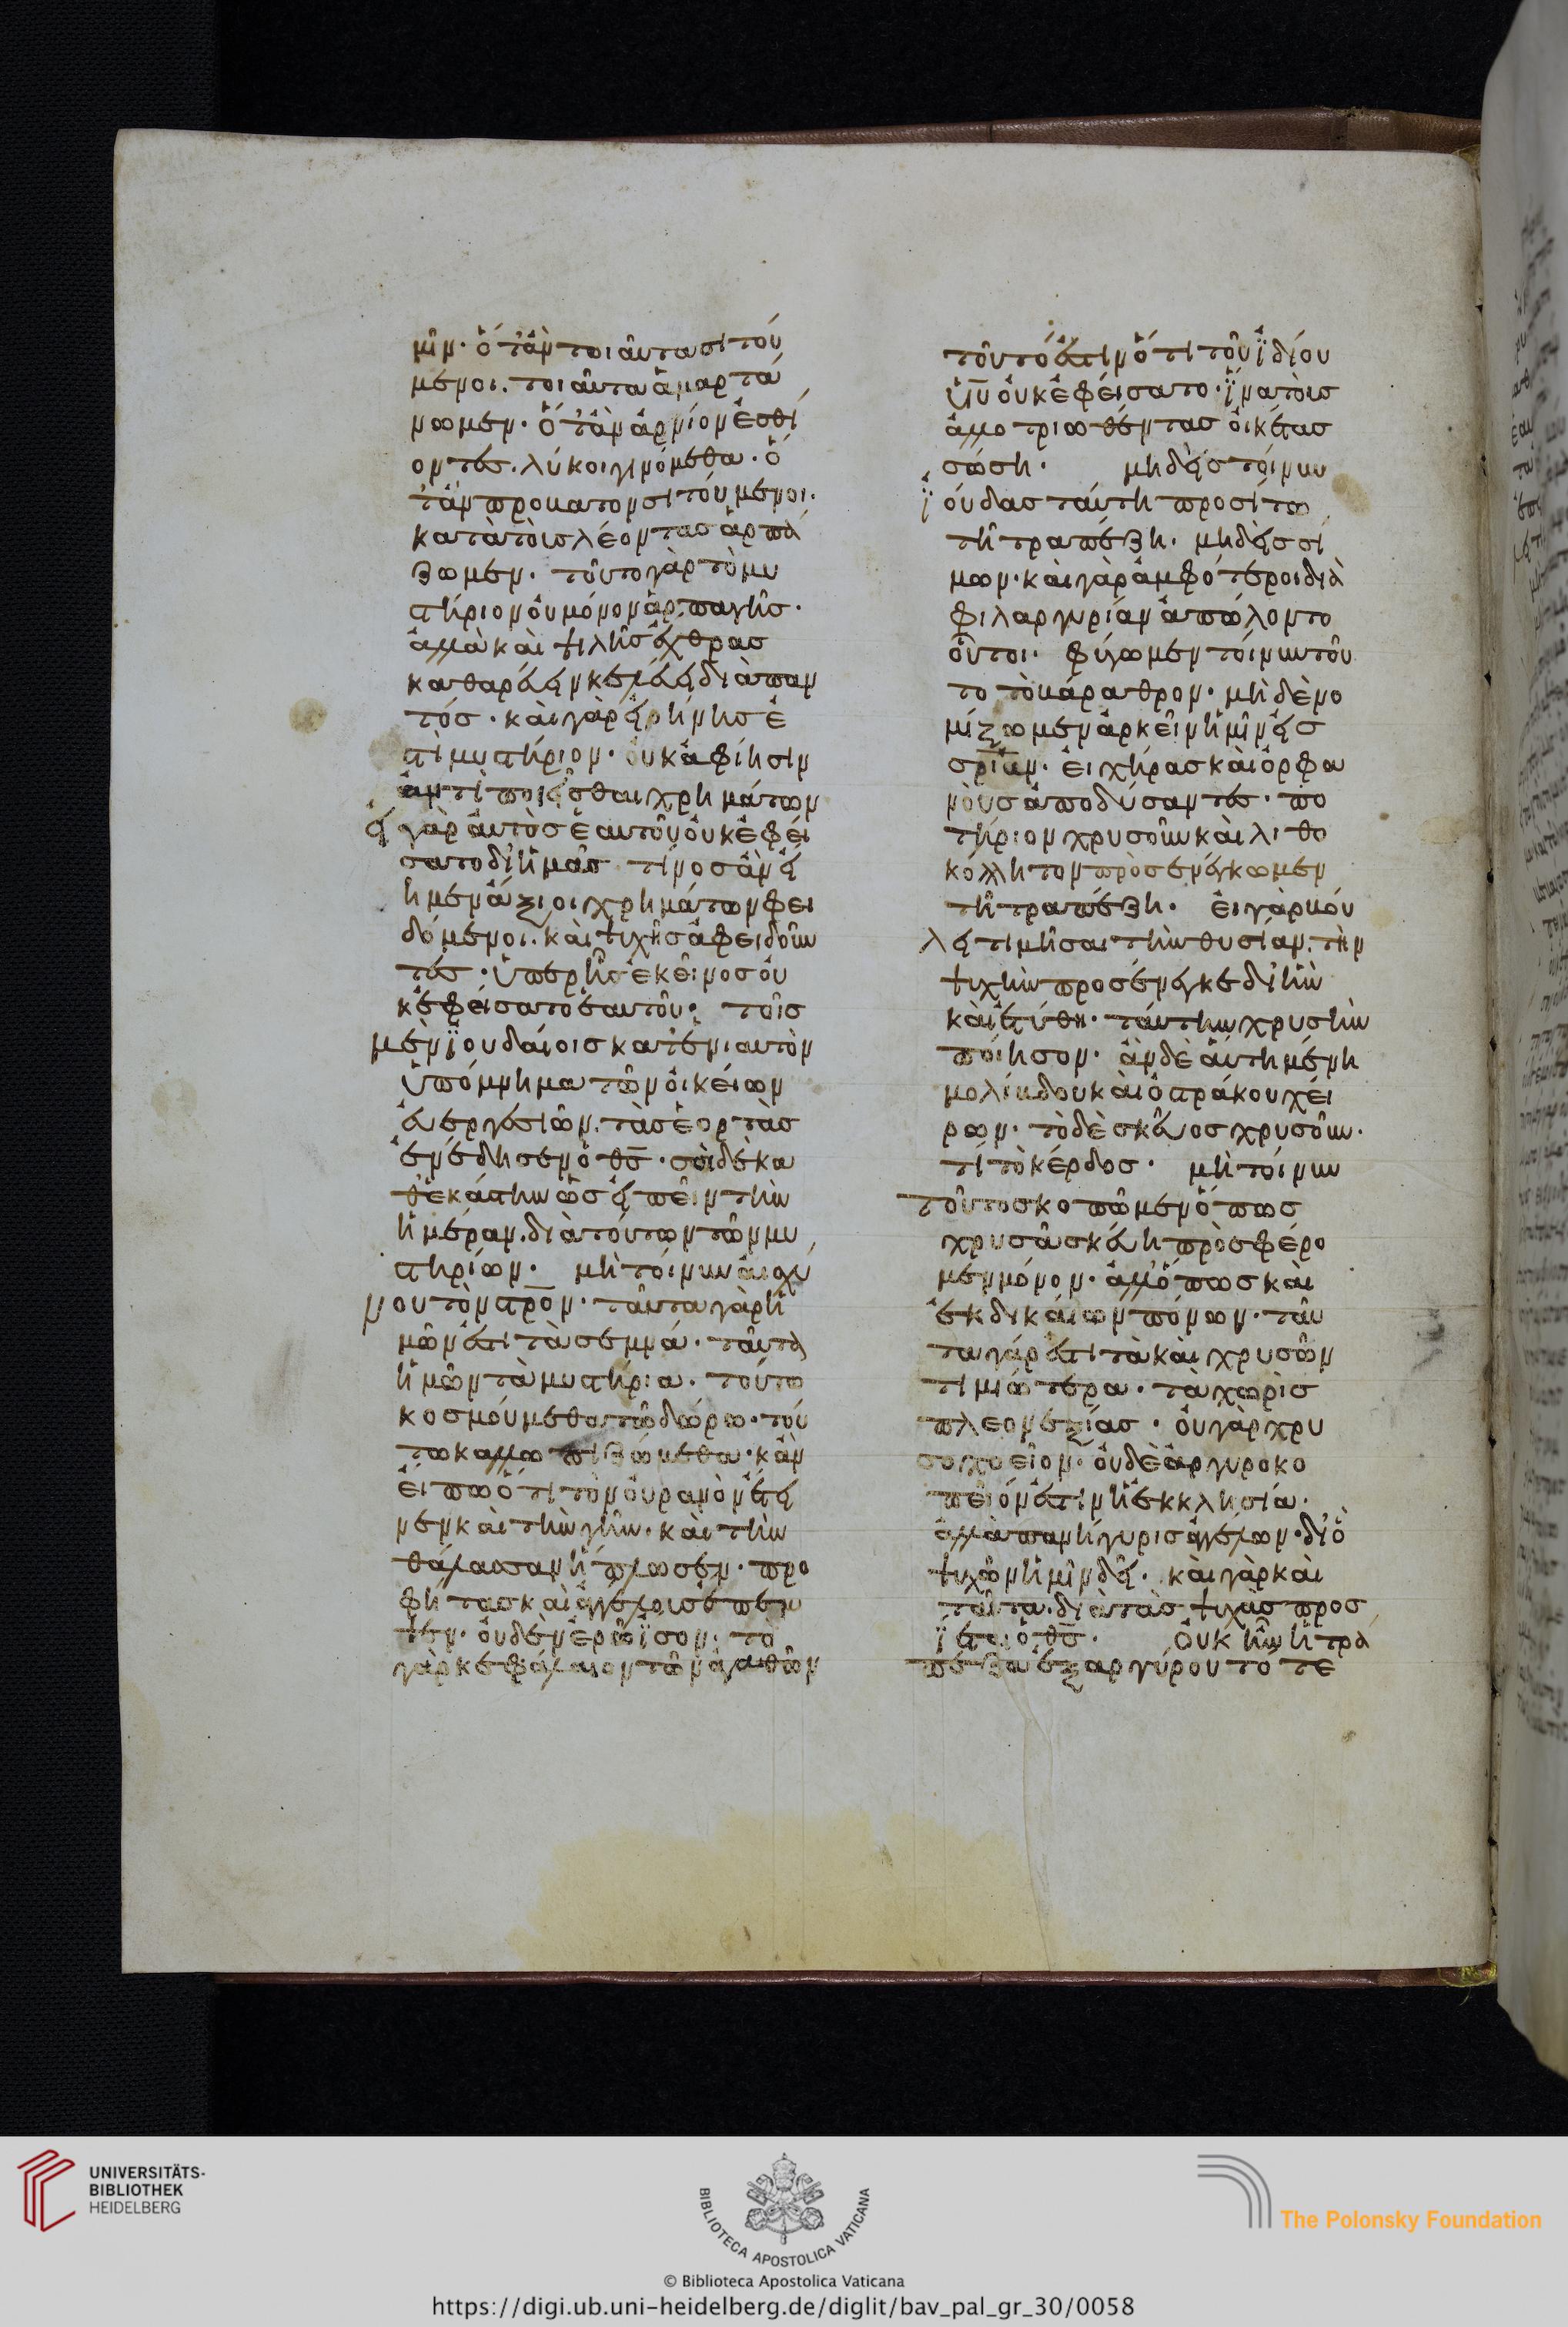 μῖν· ὅτὰν τοιαῦτα σιτού
μενοι. τοιαῦτα ἁμαρτά
νωμεν· ὅτὰν ἀρνίον ἐσθί
οντες. λύκοι γινόμεθα· ὅ
τὰν πρόβατον σιτούμενοι.
κατὰ τοὺς λέοντας ἁρπά
ζωμεν· τοῦτο γὰρ τὸ μυ
στήριον οὐ μόνον ἁρπαγῆς·
ἀλλὰ καὶ ψιλῆς ἔχθρας
καθαρεύειν κελεύει διαπαν
τός· καὶ γὰρ εἰρήνης ἐ
στὶ μυστήριον· οὐκ ἀφίησιν
ἀντιποιεῖσθαι χρημάτων
εἰ γὰρ αὐτὸς ἑαυτοῦ οὐκ ἐφεί
σατο δι' ἡμᾶς τίνος ἂν εἴ
ημεν ἄξιοι χρημάτων φει
δόμενοι. καὶ ψυχῆς ἀφειδοῦν
τες· ὑπὲρ ἧς ἐκεῖνος οὐ
κ ἐφείσατο ἑαυτοῦ· τοῖς
μὲν ϊουδαίοις κατ' ἐνιαυτὸν
ὑπόμνημα τῶν οἰκείων
εὐεργεσιῶν. τὰς ἑορτὰς
ἐνέδησεν ὁ θς̄· σοὶ δὲ κα
θ' ἑκάστην ὡς εἰπεῖν τὴν
ἡμέραν. διὰ τούτων τῶν μυ
στηρίων· μὴ τοίνυν αἰσχύ
νου τὸν στρ̄ον· ταῦτα γὰρ ἡ
μῶν ἐστὶ τὰ σεμνά· ταῦτα
ἡμῶν τὰ μυστήρια· τούτω
κοσμούμεθα τῶ δώρω· τού
τω καλλωπιζώμεθα· κἂν
εἴπω ὅτι τὸν οὐρανὸν ἔτει
νεν καὶ τὴν γῆν· καὶ τὴν
θάλασσαν ἥπλωσεν· προ
φήτας καὶ ἀγγέλους ἔπεμ
ψεν· οὐδὲν ἐρῶ ϊσον· τὸ
γὰρ κεφάλαιον τῶν ἀγαθῶν
τοῦτό ἐστιν ὅτι τοῦ ϊδίου
ῡῡ οὐκ ἐφείσατο· ϊνα τοὺς
ἀλλοτριωθέντας οἰκέτας
σώση· μηδεὶς τοίνυν
ϊούδας ταύτη προσίτω
τῆ τραπέζη· μηδεὶς σί
μων· καὶ γὰρ ἀμφότεροι διὰ
φιλαργυρίαν ἀπώλοντο
οὗτοι· φύγωμεν τοίνυν τοῦ
το τὸ βάραθρον· μὴ δὲ νο
μίζωμεν ἀρκεῖν ἡμῖν εἰς
σρ̄ίαν· εἰ χήρας καὶ ὀρφα
νοὺς ἀποδύσαντες· πο
τήριον χρυσοῦν καὶ λιθο
κόλλητον προσενέγκωμεν
τῆ τραπέζη· εἰ γὰρ βού
λει τιμῆσαι τὴν θυσίαν. τὴν
ψυχὴν προσένεγκε δι' ἣν
καὶ ἐτύθη· ταύτην χρυσῆν
ποίησον· ἂν δὲ αὕτη μένη
μολίβδου καὶ ὀστράκου χεί
ρων· τὸ δὲ σκεῦος χρυσοῦν·
τί τὸ κέρδος· μὴ τοίνυν
τοῦτο σκοπῶμεν ὅπως
χρυσᾶ σκεύη προσφέρο
μεν μόνον· ἀλλ' ὅπως καὶ
ἐκ δικαίων πόνων· ταῦ
τα γάρ ἐστι τὰ καὶ χρυσῶν
τιμιώτερα· τὰ χωρὶς
πλεονεξίας· οὐ γὰρ χρυ
σοχοεῖον· οὐδὲ ἀργυροκο
πεῖόν ἐστιν ἡ ἐκκλησία·
ἀλλὰ πανήγυρις ἀγγέλων· διὸ
ψυχῶν ἡμῖν δεῖ· καὶ γὰρ καὶ
ταῦτα. διὰ τὰς ψυχὰς προσ
ϊεται ὁ θς̄· οὐκ ἦν ἡ τρά
πεζα ἐξ ἀργύρου τότε
UNIVERSITÄTS-
BIBLIOTHEK
HEIDELBERG
BIBLIOTECA APOSTOLICA VATICANA
The Polonsky Foundation
© Biblioteca Apostolica Vaticana
https://digi.ub.uni-heidelberg.de/diglit/bav_pal_gr_30/0058